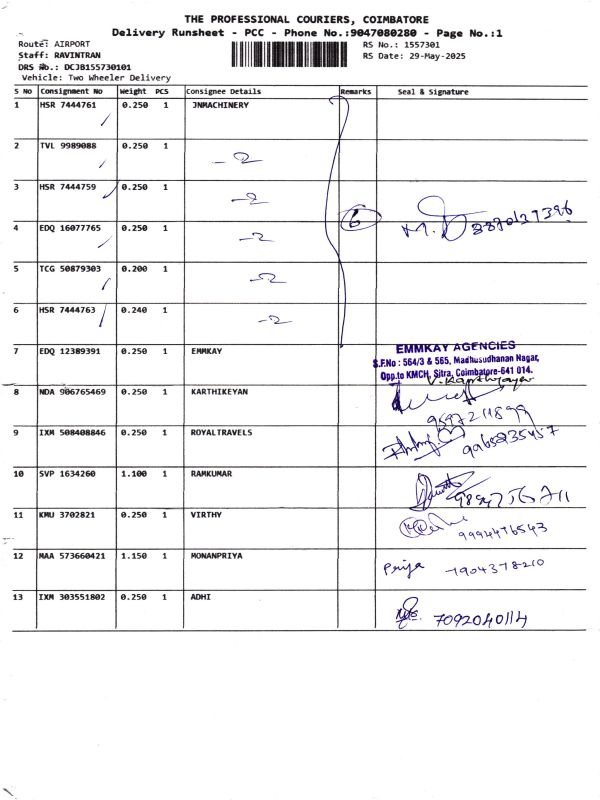 THE PROFESSIONAL COURIERS, COIMBATORE
Delivery Runsheet - PCC - Phone No.:9047080280 - Page No.:1
Route: AIRPORT
RS No.: 1557301
Staff: RAVINTRAN
RS Date: 29-May-2025
DRS No.: DCJB155730101
Vehicle: Two Wheeler Delivery
S No Consignment No Weight PCS Consignee Details Remarks Seal & Signature
1 HSR 7444761 0.250 1 JNMACHINERY
2 TVL 9989088 0.250 1
3 HSR 7444759 0.250 1
6
4 EDQ 16077765 0.250 1
5 TCG 50879303 0.200 1
6 HSR 7444763 0.240 1
7 EDQ 12389391 0.250 1 EMMKAY
EMMKAY AGENCIES
S.F.No : 564/3 & 565, Madhusudhanan Nagar,
Opp.to KMCH, Sitra, Coimbatore-641 014.
8 NDA 906765469 0.250 1 KARTHIKEYAN
9597211899
9 IXM 508408846 0.250 1 ROYALTRAVELS
9965235457
10 SVP 1634260 1.100 1 RAMKUMAR
11 KMU 3702821 0.250 1 VIRTHY
9994476543
12 MAA 573660421 1.150 1 MONANPRIYA
Priya 7904378210
13 IXM 303551802 0.250 1 ADHI
7092040114